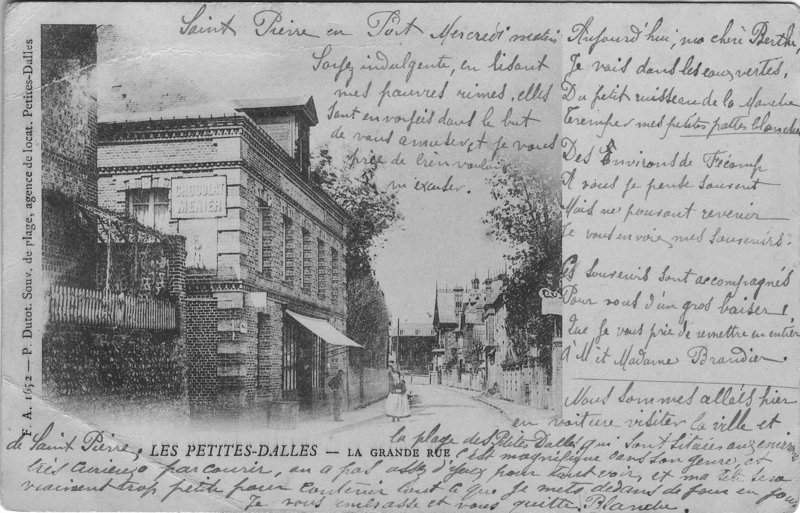 Saint Pierre en Port Mercredi matin
Soyez indulgente, en lisant
mes pauvres rimes, elles
sont envoyées dans le but
de vous amuser, et je vous
prie de bien vouloir
m'excuser.
Aujourd'hui, ma chère Berthe,
Je vais dans les eaux vertes,
Du petit ruisseau de la Manche
Tremper mes petites pattes blanches
Des Environs de Fécamp
A vous je pense souvent
Mais ne pouvant revenir
Je vous envoie mes souvenirs.
Ces souvenirs sont accompagnés
Pour vous d'un gros baiser!
Que je vous prie de remettre en entier
à M. et Madame Brandier.
Nous sommes allés hier
en voiture visiter la ville et
la plage des Petites Dalles, qui sont situées aux environs
de Saint Pierre, C'est magnifique dans son genre, et
très curieux à parcourir, on a pas assez d'yeux pour tout voir, et ma tête sera
vraiment trop petite pour contenir tout ce que je mets dedans de jour en jour
Je vous embrasse et vous quitte Blanche.
CHOCOLAT
MENIER
F. A. 1652 — P. Dutot. Souv. de plage, agence de locat. Petites-Dalles
LES PETITES-DALLES — LA GRANDE RUE